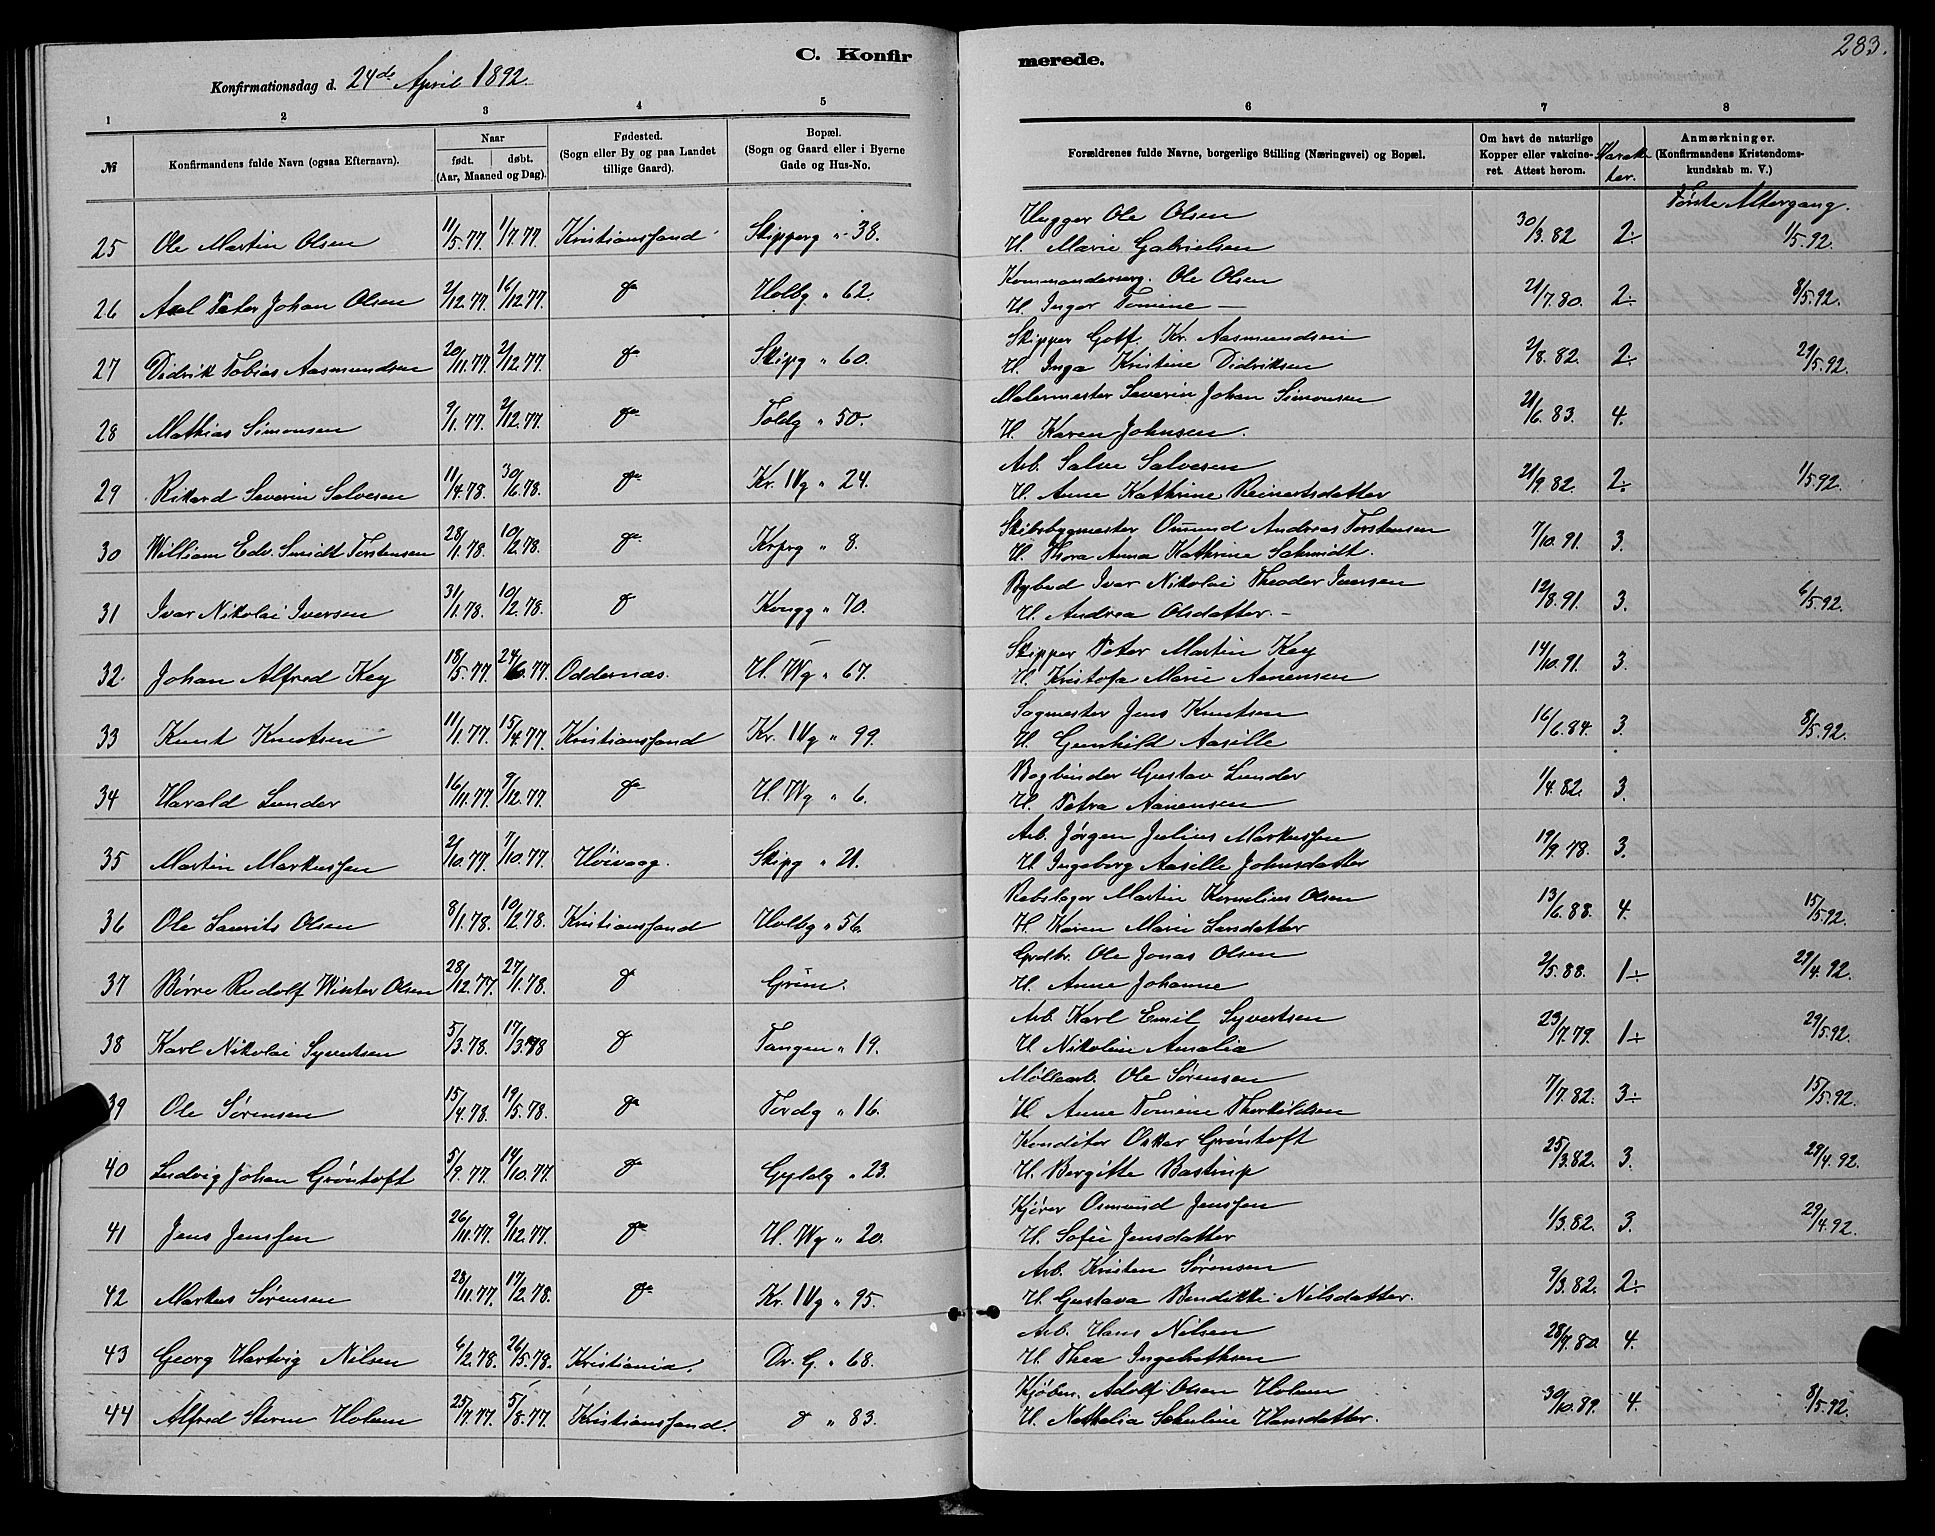 283.
C. Konfirmerede.
Konfirmationsdag d. 24de April 1892.
1 2 3 4 5 6 7 8
№
Konfirmandens fulde Navn (ogsaa Efternavn).
Naar
født. døbt.
(Aar, Maaned og Dag).
Fødested.
(Sogn eller By og paa Landet
tillige Gaard).
Bopæl.
(Sogn og Gaard eller i Byerne
Gade og Hus-No.
Forældrenes fulde Navne, borgerlige Stilling (Næringsvei) og Bopæl.
Om havt de naturlige
Kopper eller vakcine-
ret. Attest herom.
Karak-
ter.
Anmærkninger.
(Konfirmandens Kristendoms-
kundskab m. V.)
Første Altergang.
25 Ole Martin Olsen 11/5.77. 1/7.77. Kristianssand Skipperg " 38. Hugger Ole Olsen 30/3.82 2÷ 1/5.92.
H. Marie Gabrielsen
26 Axel Peter Johan Olsen 2/12.77. 16/12.77. do Holbg " 62. Kommanderserg. Ole Olsen 21/7.80. 2÷ 8/5.92.
H. Inger Tomine —
27 Didrik Tobias Aasmundsen 20/11.77. 2/12.77. do Skipg " 60. Skipper Gotf. Kr. Aasmundsen 2/8.82. 2÷ 29/5.92.
H. Inga Kristine Didriksen
28 Mathias Simonsen 9/1.77. 2/12.77. do Toldg " 50. Malermester Severin Johan Simonsen 21/6.83. 4.
H. Karen Johnsen.
29 Rikard Severin Salvesen 11/4.78. 30/6.78. do Kr. IVg " 24. Arb. Salve Salvesen 21/9.82. 2. 1/5.92.
H. Anne Kathrine Reinertsdatter
30 William Edv. Smidt Torstensen 28/1.78. 10/2.78. do Krprg " 8. Skibsbygmester Omund Andreas Torstensen 7/10.91. 3.
H. Thora Anna Kathrine Schmidt.
31 Ivar Nikolai Iversen 31/1.78. 10/2.78. do Kongg " 70. Bybud Ivar Nikolai Theodor Iversen 12/8.91. 3. 6/5.92.
H. Andrea Olsdatter. —
32. Johan Alfred Key 18/5.77. 24/6.77. Oddernæs. H. IVg " 67. Skipper Peter Martin Key 14/10.91. 3.
H. Kristofa Marie Aanensen
33 Knut Knutsen 11/1.77. 15/4.77. Kristianssand Kr. IVg " 99. Sagmester Jens Knutsen 16/6.84. 3. 8/5.92.
H. Gunhild Aasille
34 Harald Lunder 16/11.77. 9/12.77. do H. IVg " 6. Bogbinder Gustav Lunder 1/4.82. 3.
H. Petra Aanensen
35 Martin Markussen 2/10.77. 7/10.77. Høivaag. Skipg " 21. Arb. Jørgen Julius Markussen 19/9.78. 3.
H. Ingeborg Aasille Johnsdatter
36 Ole Laurits Olsen 8/1.78. 10/2.78. Kristianssand Holbg " 56. Rebslager Martin Kornelius Olsen 13/6.88. 4. 15/5.92.
H. Karen Marie Larsdatter
37 Børre Rudolf Winter Olsen 28/12.77. 27/1.78. do Grim. Grdbr. Ole Jonas Olsen 2/5.88. 1÷ 29/4.92.
H. Anne Johanne
38 Karl Nikolai Syvertsen 5/3.78. 17/3.78 do Tangen " 19. Arb. Karl Emil Syvertsen 23/7.79. 1÷ 29/5.92.
H. Nikoline Amalia
39 Ole Sørensen 15/4.78. 19/5.78. do Tordg " 16. Møllearb. Ole Sørensen 7/7.82. 3÷ 15/5.92.
H. Anne Tomine Therkildsen
40 Ludvig Johan Grøntoft 5/9.77. 14/10.77. do Gyldg " 23. Konditor Oskar Grøntoft 25/3.82. 3. 29/4.92.
H. Bergitte Bastrup
41 Jens Jenssen 26/11.77. 9/12.77. do H. IVg " 20. Kjører Osmund Jenssen 1/3.82. 3. 29/4.92.
H. Sofie Jensdatter
42 Markus Sørensen 28/11.77. 17/2.78. do Kr. IVg " 95. Arb. Kristen Sørensen 9/3.82. 2÷
H. Gustava Bendikke Nilsdatter.
43 Georg Hartvig Nilsen 6/2.78. 26/5.78. Kristiania. Dr. G " 68. Arb. Hans Nilsen 28/9.80. 4.
H. Thea Ingebrethsen
44 Alfred Storm Holum 25/7.77. 5/8.77. Kristianssand. do " 83. Kjøbm. Adolf Olsen Holum 30/10.89. 4. 8/5.92.
H. Nathalia Sekuline Hansdatter.